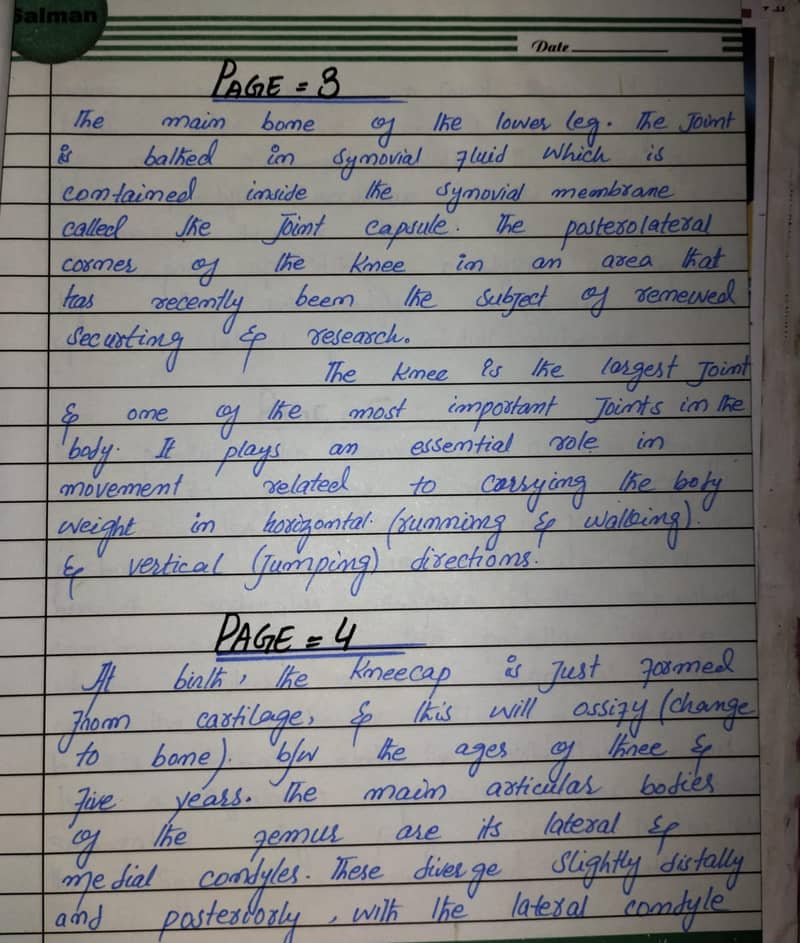 Salman
Date
PAGE = 3
The main bone of the lower leg. The Joint
is bathed in Synovial fluid which is
contained inside the synovial membrane
called the Joint capsule. The posterolateral
corner of the knee in an area that
has recently been the subject of renewed
Securting & research.
The knee is the largest Joint
& one of the most important Joints in the
body. It plays an essential role in
movement related to carrying the body
weight in horizontal (running & walking).
& vertical (Jumping) directions.
PAGE = 4
At birth, the Kneecap is Just formed
from cartilage, & this will ossify (change
to bone). b/w the ages of three &
five years. The main articular bodies
of the femur are its lateral &
medial condyles. These diverge slightly distally
and posteriorly, with the lateral condyle